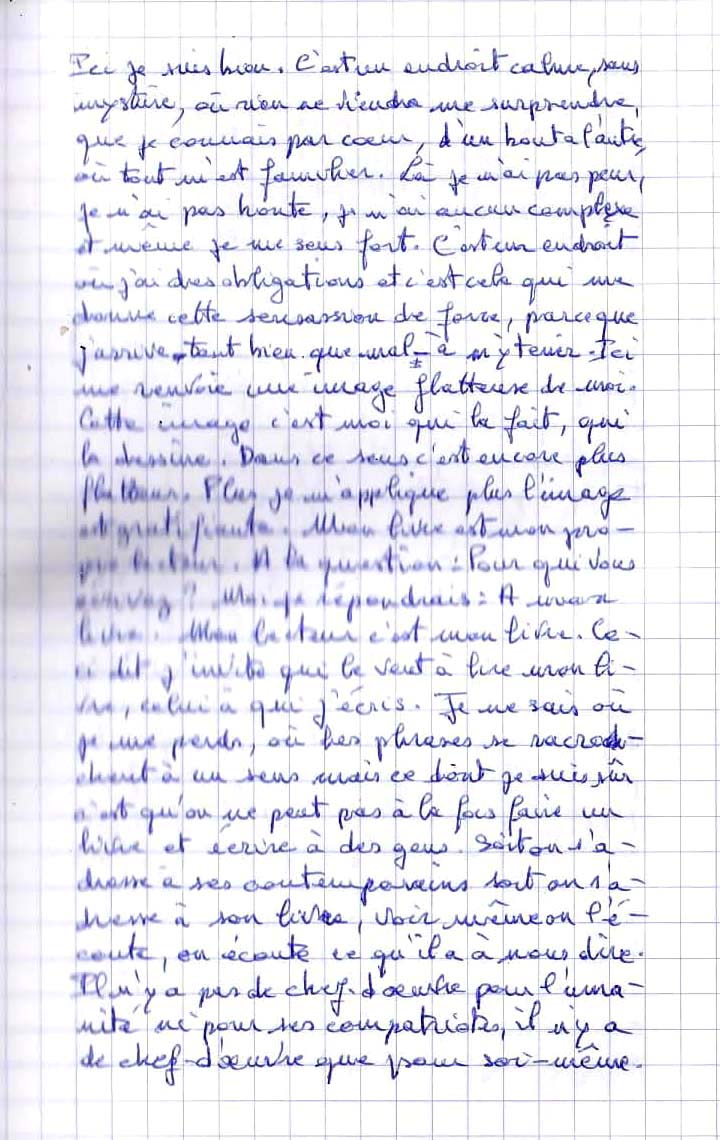 Ici je suis bien. C'est un endroit calme, sans
mystère, où rien ne viendra me surprendre,
que je connais par cœur, d'un bout a l'autre,
où tout m'est familier. Là je n'ai pas peur,
je n'ai pas honte, je n'ai aucun complexe
et même je me sens fort. C'est un endroit
où j'ai des obligations et c'est cela qui me
donne cette sensassion de force, parce que
j'arrive tant bien que mal à m'y tenir. Ici
me renvoie une image flatteuse de moi.
Cette image c'est moi qui la fait, qui
la dessine. Dans ce sens c'est encore plus
flatteur. Plus je m'applique plus l'image
est gratifiante. Mon livre est mon pro-
pre lecteur. A la question : Pour qui vous
écrivez ? Moi je répondrais : A mon
livre. Mon lecteur c'est mon livre. Ce-
ci dit j'invite qui le veut à lire mon li-
vre, celui à qui j'écris. Je ne sais où
je me perds, où les phrases se raccroch-
chent à un sens mais ce dont je suis sûr
c'est qu'on ne peut pas à la fois faire un
livre et écrire à des gens. Soit on s'a-
dresse à ses contemporains soit on s'a-
dresse à son livre, voir même on l'é-
coute, on écoute ce qu'il a à nous dire.
Il n'y a pas de chef-d'œuvre pour l'uma-
nité ni pour ses compatriotes, il n'y a
de chef-d'œuvre que pour soi-même.